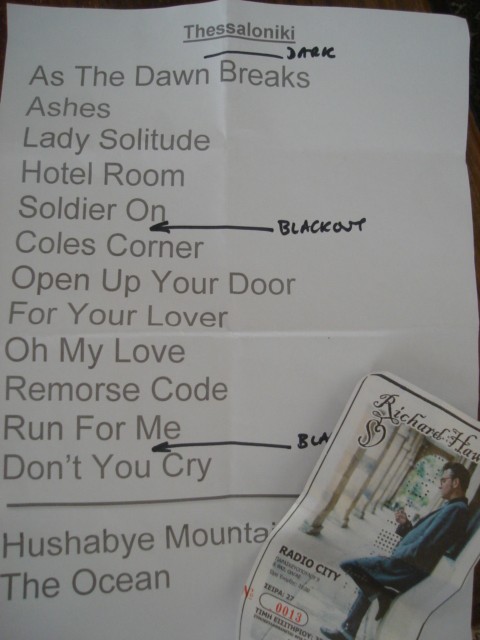 Thessaloniki
DARK
As The Dawn Breaks
Ashes
Lady Solitude
Hotel Room
Soldier On
BLACKOUT
Coles Corner
Open Up Your Door
For Your Lover
Oh My Love
Remorse Code
Run For Me
BLA
Don't You Cry
Hushabye Mountai
The Ocean
Richard Haw
RADIO CITY
ΣΕΙΡΑ: 27
0013
ΤΙΜΗ ΕΙΣΙΤΗΡΙΟΥ